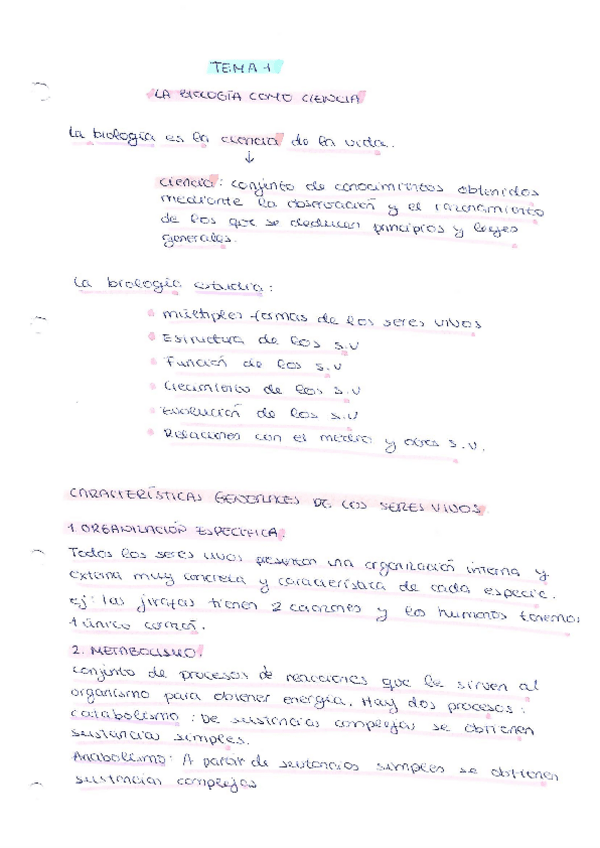 TEMA 1
LA BIOLOGÍA COMO CIENCIA
La biología es la ciencia de la vida.
↓
ciencia: conjunto de conocimientos obtenidos
mediante la observación y el razonamiento
de los que se deducen principios y leyes
generales.
La biología estudia:
• múltiples formas de los seres vivos
• Estructura de los s.v
• Función de los s.v
• Crecimiento de los s.v
• Evolución de los s.v
• Relaciones con el medio y otros s.v.
CARACTERÍSTICAS GENERALES DE LOS SERES VIVOS
1. ORGANIZACIÓN ESPECÍFICA.
Todos los seres vivos presentan una organización interna y
externa muy concreta y característica de cada especie.
ej: las jirafas tienen 2 corazones y los humanos tenemos
1 único corazón.
2. METABOLISMO.
conjunto de procesos de reacciones que le sirven al
organismo para obtener energía. Hay dos procesos:
catabolismo: De sustancias complejas se obtienen
sustancias simples.
Anabolismo: A partir de sustancias simples se obtienen
sustancias complejas